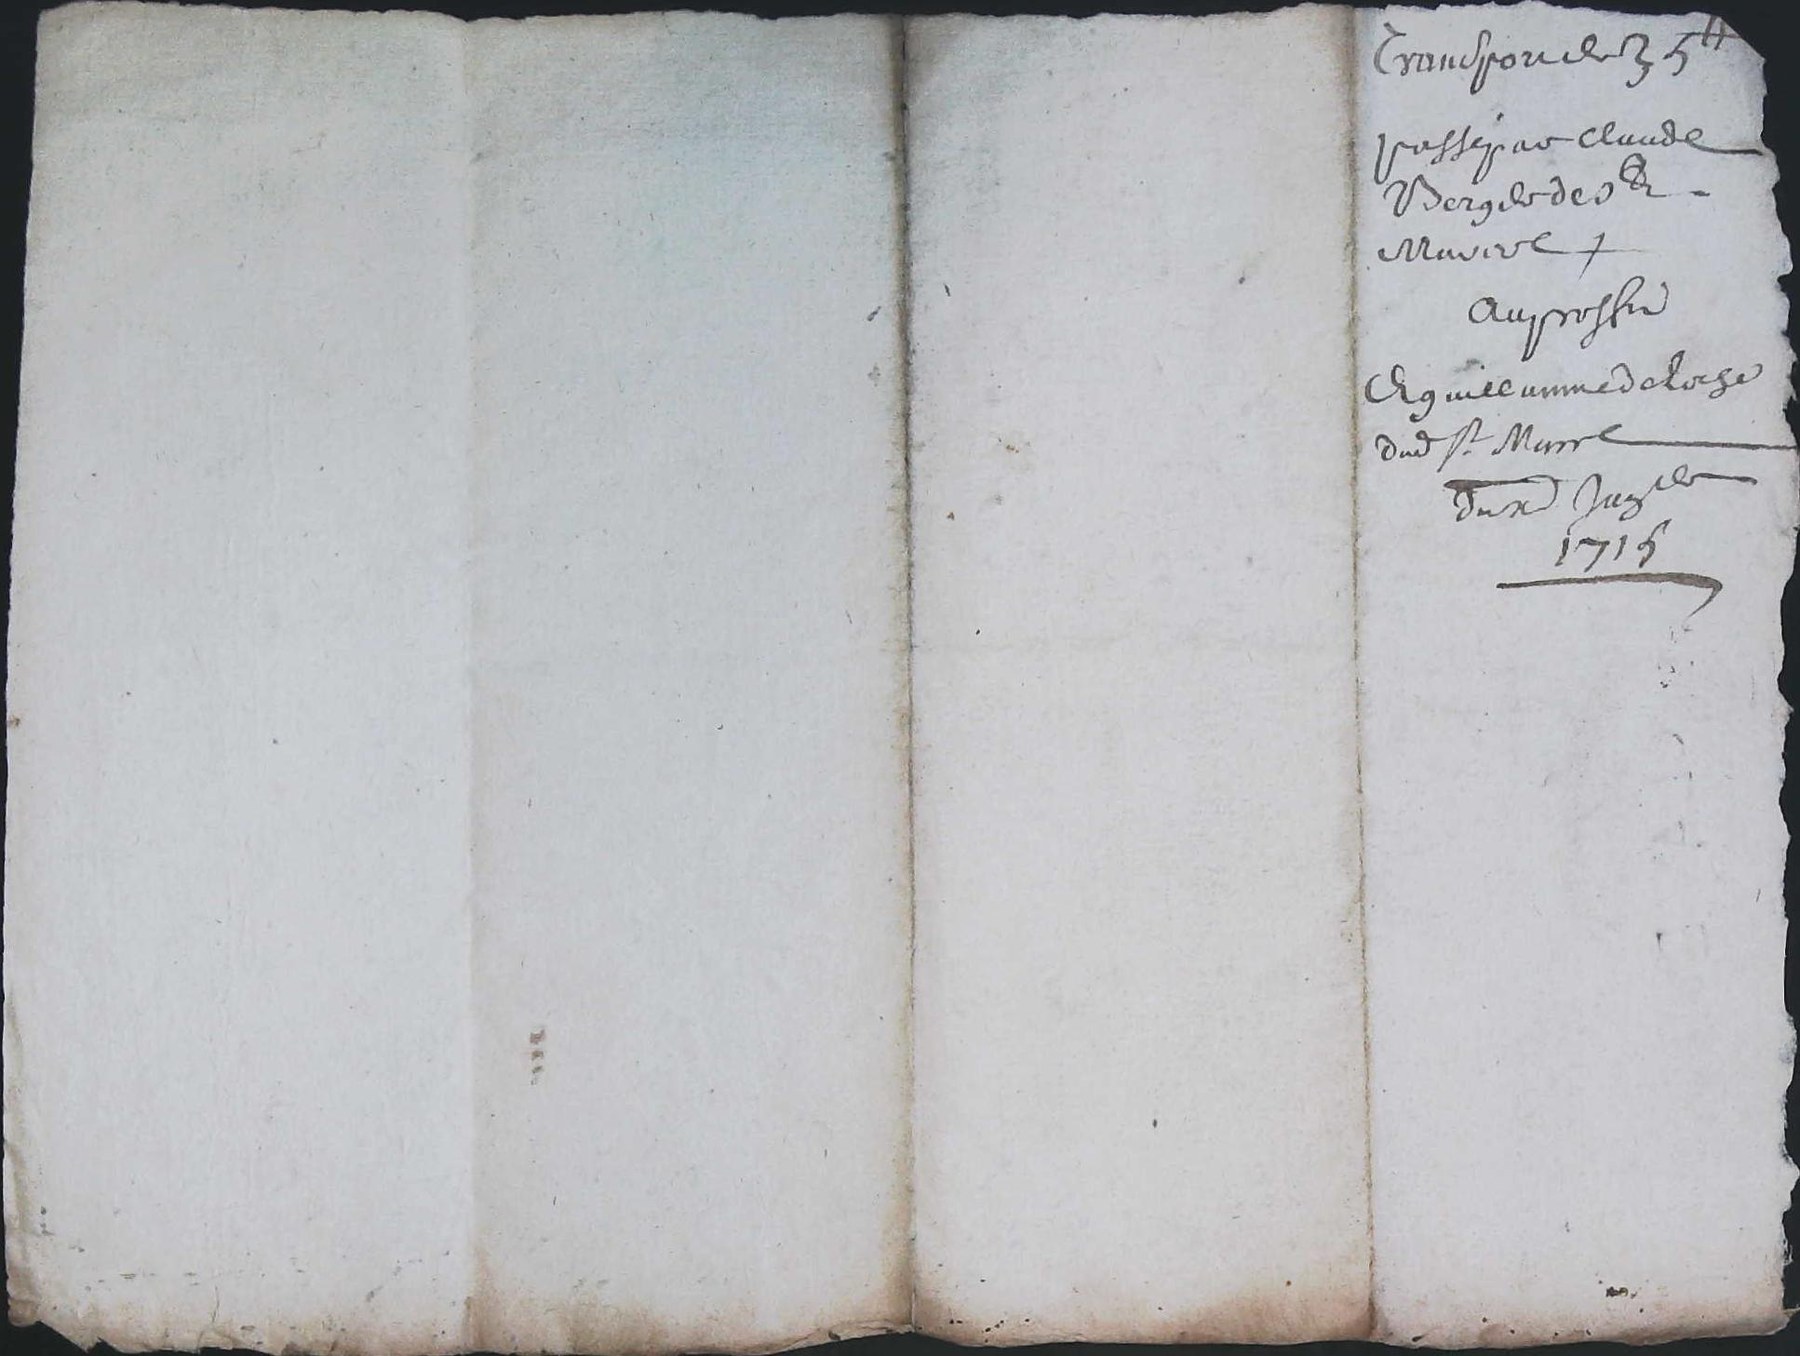 Transport de 35ᵗᵗ
passé par Claude
Berger de St
Marcel
Au proffit
De guillaume deloche
dud St Marcel
Du
1715